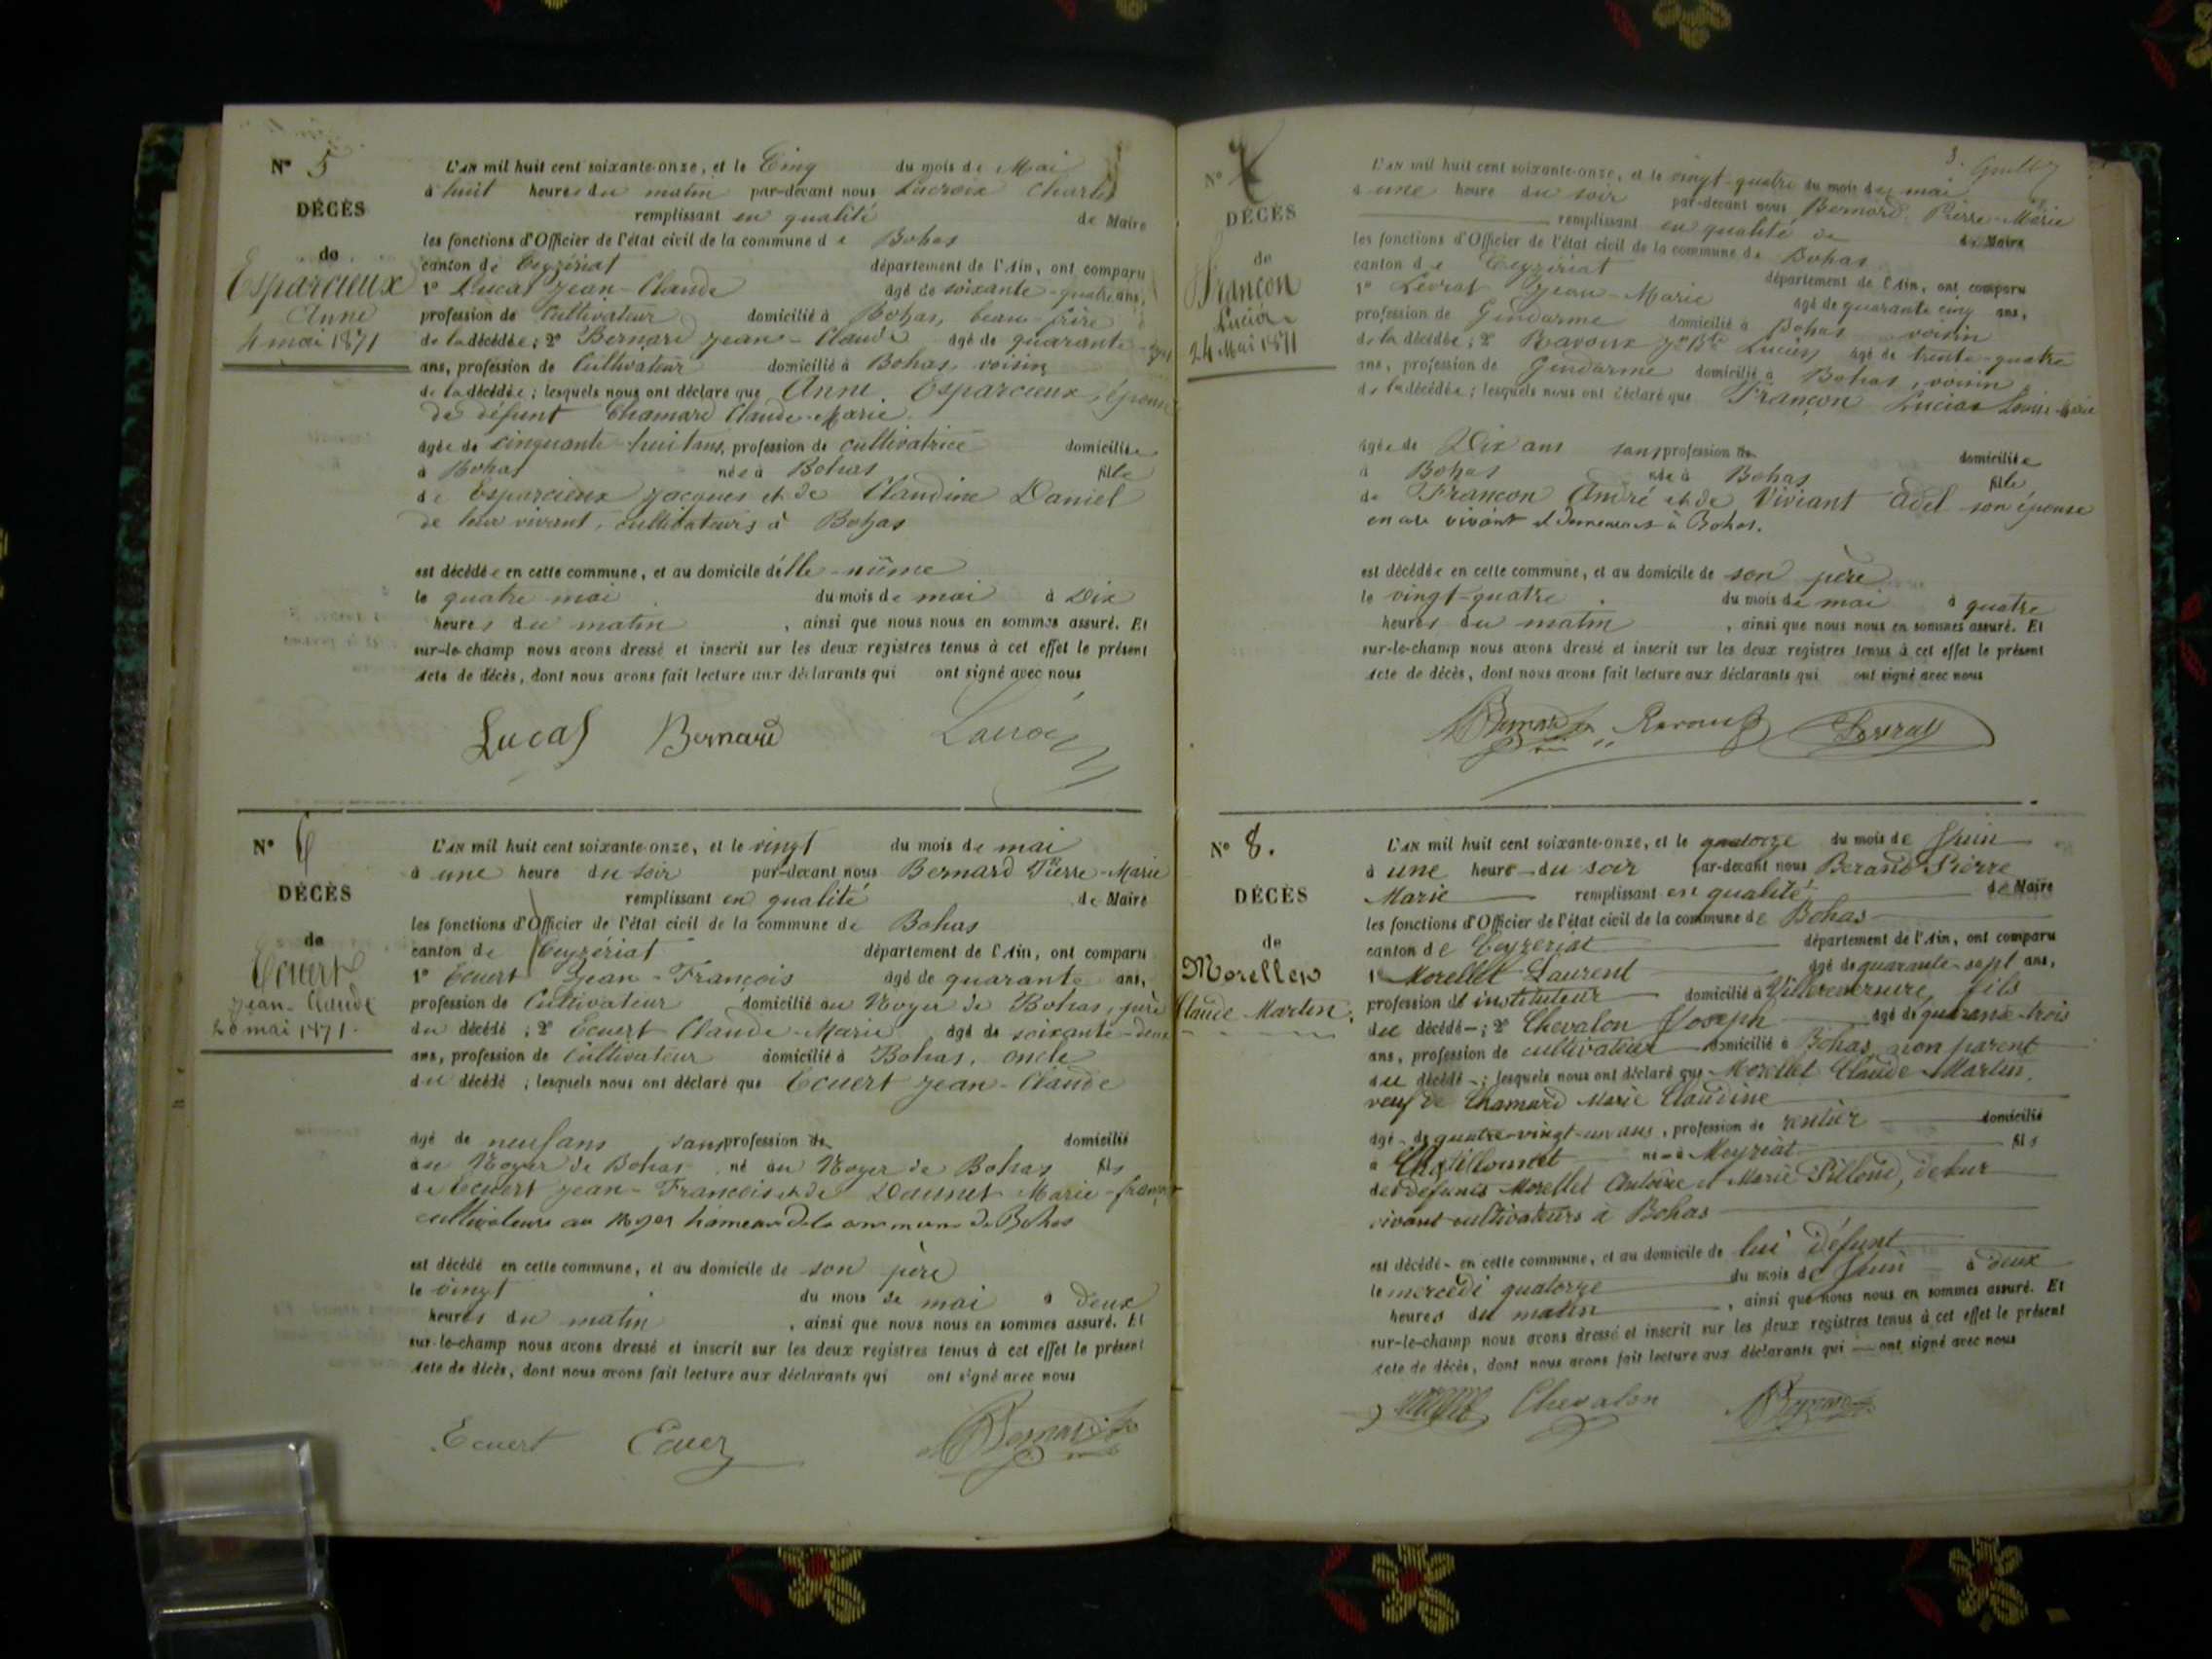 N° 5
DÉCÈS
de
Esparcieux
Anne
4 mai 1871
L'AN mil huit cent soixante-onze, et le Cinq du mois de Mai
à huit heures du matin par-devant nous Lacroix Charles
remplissant en qualité de Maire
les fonctions d'Officier de l'état civil de la commune de Bohas
canton de Ceyzériat département de l'Ain, ont comparu
1° Lucas Jean-Claude âgé de soixante-quatre ans,
profession de Cultivateur domicilié à Bohas, beau-frère
de la décédée; 2° Bernard Jean-Claude âgé de quarante
ans, profession de Cultivateur domicilié à Bohas, voisin
de la décédée; lesquels nous ont déclaré que Anne Esparcieux, épouse
de défunt Chamard Claude-Marie
âgée de cinquante-huit ans, profession de cultivatrice domiciliée
à Bohas née à Bohas fille
de Esparcieux Jacques et de Claudine Daniel
de leur vivant, cultivateurs à Bohas
est décédée en cette commune, et au domicile d'elle-même
le quatre mai du mois de mai à Dix
heures du matin, ainsi que nous nous en sommes assuré. Et
sur-le-champ nous avons dressé et inscrit sur les deux registres tenus à cet effet le présent
acte de décès, dont nous avons fait lecture aux déclarants qui ont signé avec nous
Lucas Bernard Lacroix
N° 6
DÉCÈS
de
Ecuert
Jean-Claude
20 mai 1871.
L'AN mil huit cent soixante-onze, et le vingt du mois de mai
à une heure du soir par-devant nous Bernard Pierre-Marie
remplissant en qualité de Maire
les fonctions d'Officier de l'état civil de la commune de Bohas
canton de Ceyzériat département de l'Ain, ont comparu
1° Ecuert Jean-François âgé de quarante ans,
profession de Cultivateur domicilié au Noyer de Bohas, père
du décédé; 2° Ecuert Claude-Marie âgé de soixante-deux
ans, profession de Cultivateur domicilié à Bohas, oncle
du décédé; lesquels nous ont déclaré que Ecuert Jean-Claude
âgé de neuf ans, sans profession de domicilié
au Noyer de Bohas né au Noyer de Bohas fils
de Ecuert Jean-François et de Marie
cultivateurs au Noyer hameau de la commune de Bohas
est décédé en cette commune, et au domicile de son père
le vingt du mois de mai à deux
heures du matin, ainsi que nous nous en sommes assuré. Et
sur-le-champ nous avons dressé et inscrit sur les deux registres tenus à cet effet le présent
acte de décès, dont nous avons fait lecture aux déclarants qui ont signé avec nous
Ecuert Ecuer Bernard
3.
N° 7
DÉCÈS
de
Françon
Lucie
24 Mai 1871
L'AN mil huit cent soixante-onze, et le vingt-quatre du mois de mai
à une heure du soir par-devant nous Bernard Pierre-Marie
remplissant en qualité de de Maire
les fonctions d'Officier de l'état civil de la commune de Bohas
canton de Ceyzériat département de l'Ain, ont comparu
1° Levrat Jean-Marie âgé de quarante cinq ans,
profession de Gendarme domicilié à Bohas voisin
de la décédée; 2° Ravoux Jn Bte Lucien âgé de trente-quatre
ans, profession de Gendarme domicilié à Bohas, voisin
de la décédée; lesquels nous ont déclaré que Françon
âgée de Dix ans sans profession de domiciliée
à Bohas née à Bohas fille
de Francon André et de Viviant Adel son épouse
encore vivant et demeurants à Bohas.
est décédée en cette commune, et au domicile de son père
le vingt-quatre du mois de mai à quatre
heures du matin, ainsi que nous nous en sommes assuré. Et
sur-le-champ nous avons dressé et inscrit sur les deux registres tenus à cet effet le présent
acte de décès, dont nous avons fait lecture aux déclarants qui ont signé avec nous
Bernard Ravoux Levrat
N° 8.
DÉCÈS
de
Morellet
Claude-Martin.
L'AN mil huit cent soixante-onze, et le quatorze du mois de Juin
à une heure du soir par-devant nous Berand Pierre
Marie remplissant en qualité de Maire
les fonctions d'Officier de l'état civil de la commune de Bohas
canton de Ceyzeriat département de l'Ain, ont comparu
1° Morellet Laurent âgé de quarante-sept ans,
profession d'instituteur domicilié à Villereversure, fils
du décédé; 2° Chevalon Joseph âgé de quarante-trois
ans, profession de cultivateur domicilié à Bohas, non parent
du décédé; lesquels nous ont déclaré que Morellet Claude-Martin,
veuf de Chamard Marie Claudine
âgé de quatre-vingt-un ans, profession de rentier domicilié
à Chatillonnet né à Meyriat fils
des défunts Morellet Antoine et Marie Pilloud, de leur
vivant cultivateurs à Bohas
est décédé en cette commune, et au domicile de lui défunt
le mercredi quatorze du mois de Juin à deux
heures du matin, ainsi que nous nous en sommes assuré. Et
sur-le-champ nous avons dressé et inscrit sur les deux registres tenus à cet effet le présent
acte de décès, dont nous avons fait lecture aux déclarants qui ont signé avec nous
Chevalon Bernard